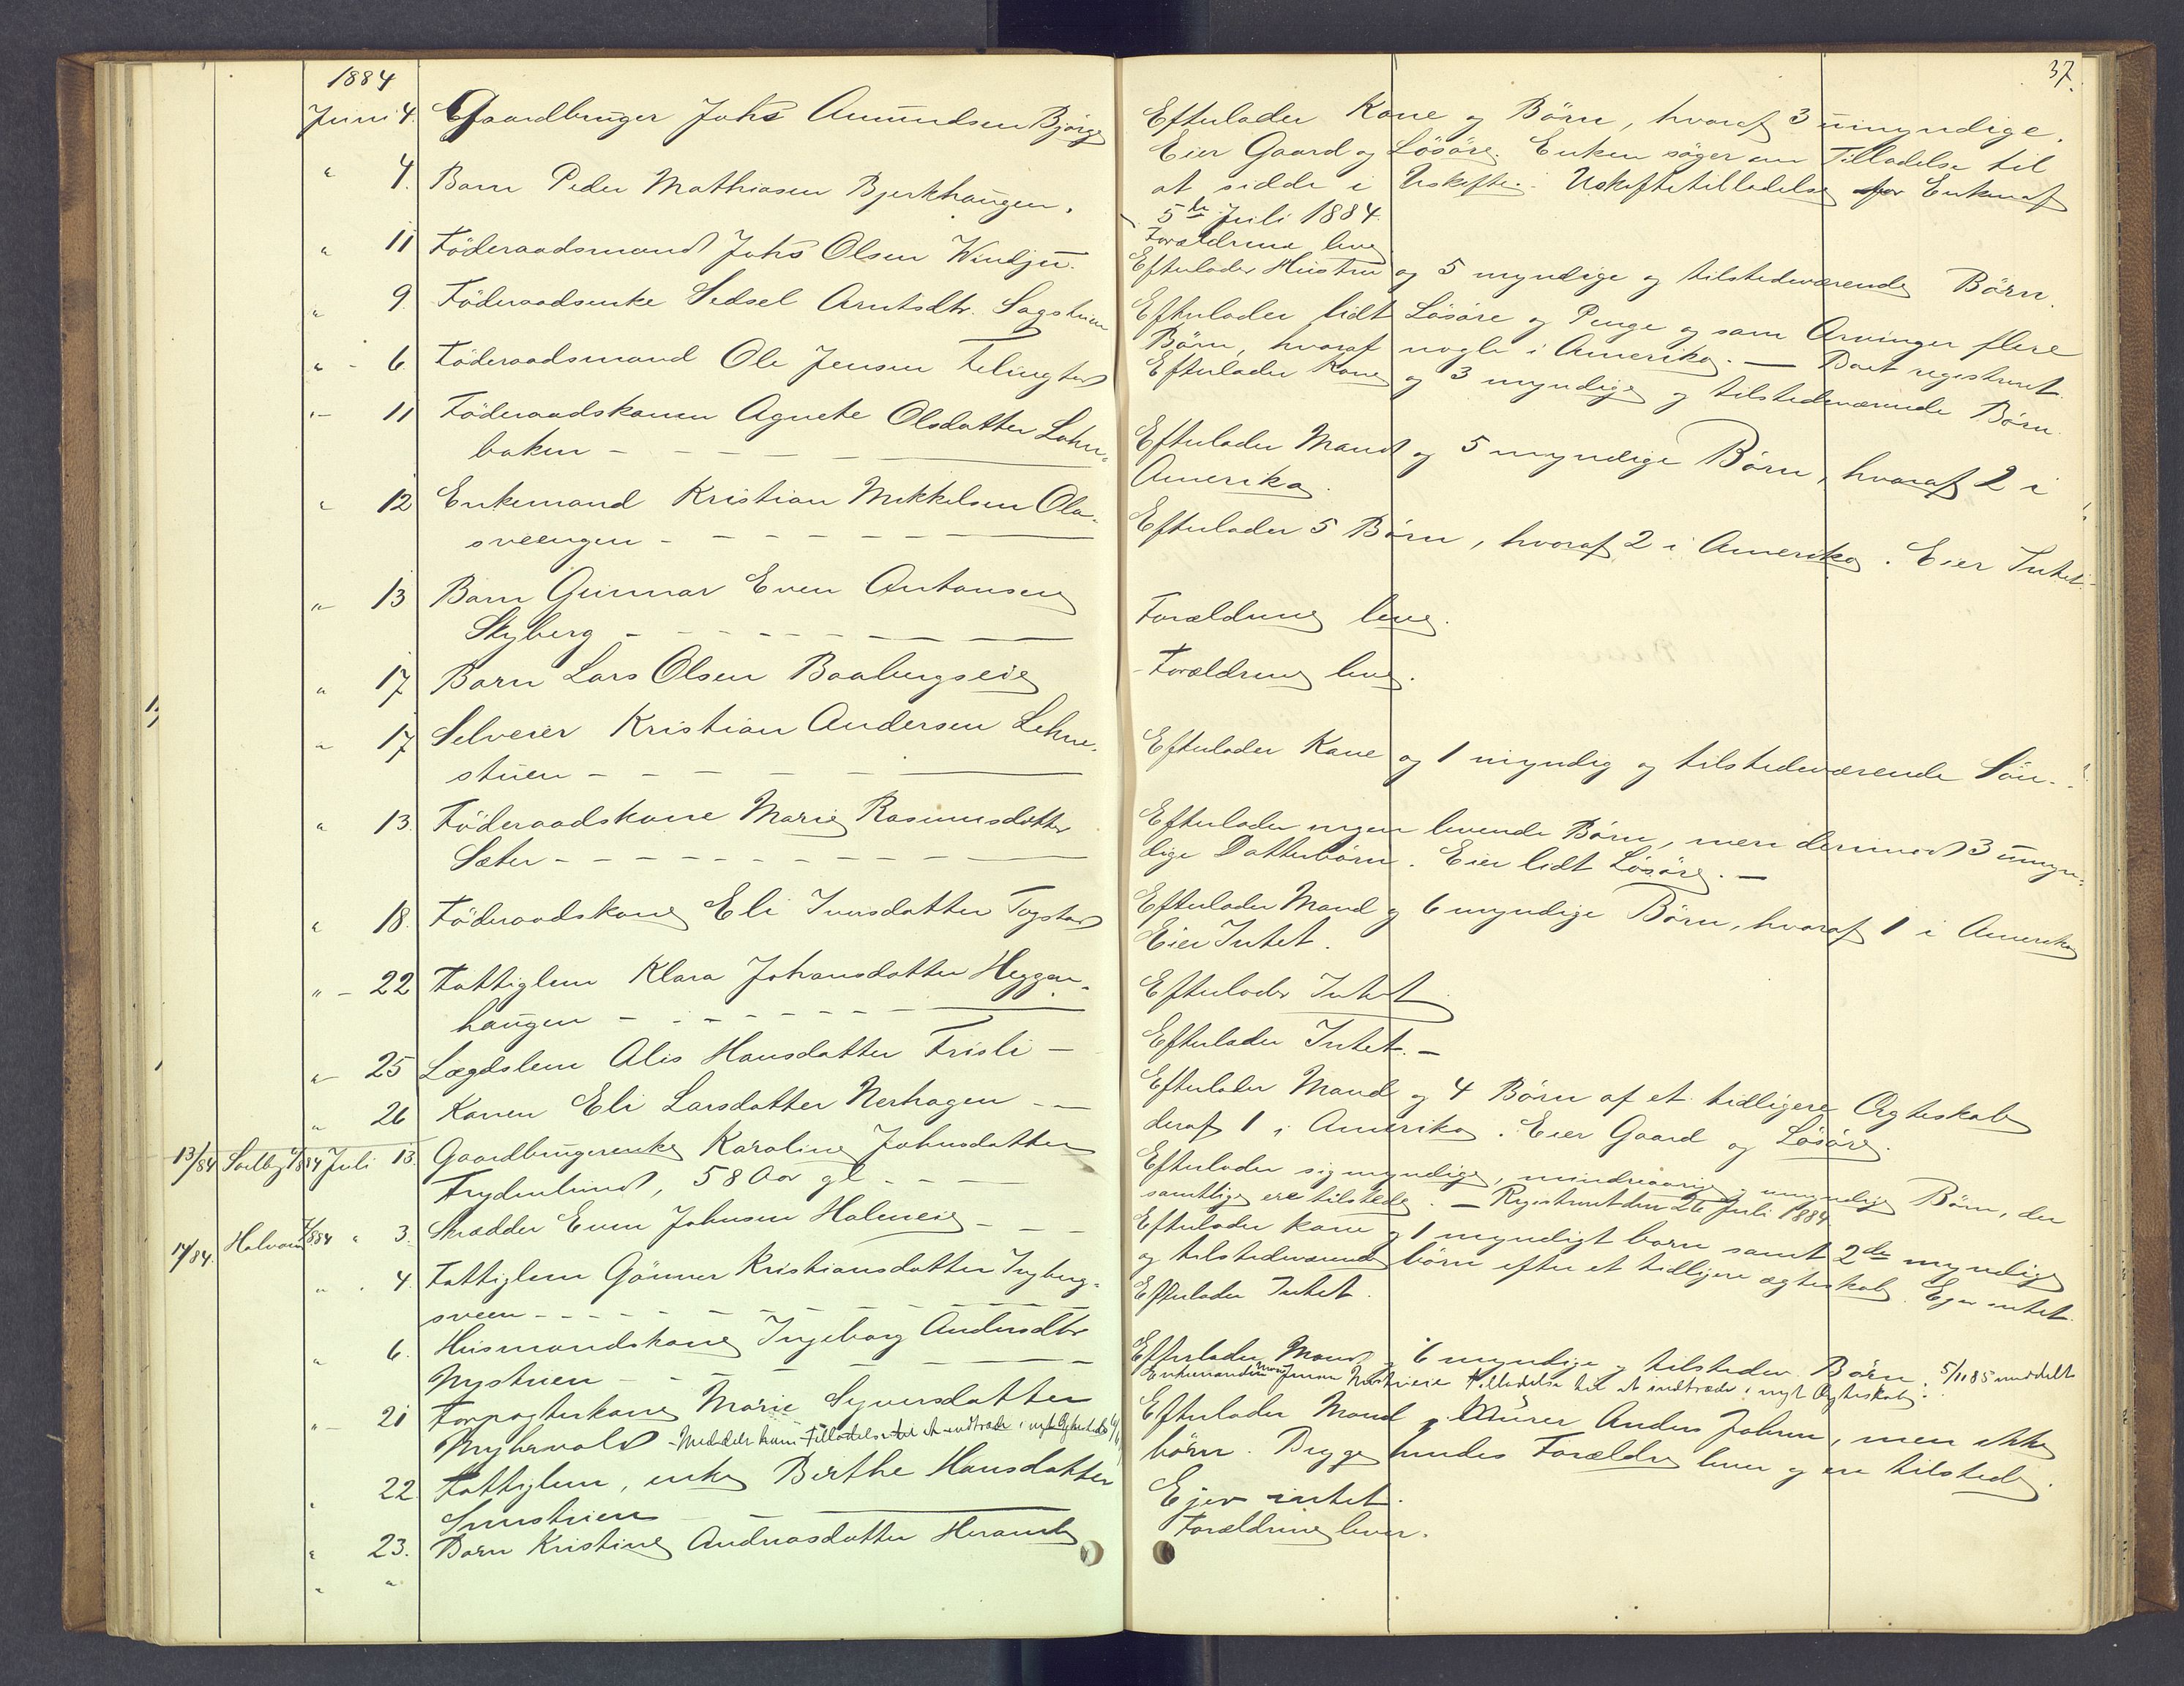 37.
1884
Juni 4. Gaardbruger Johs Amundsen Bjørge
Efterlader Kone og Börn, hvoraf 3 umyndige.
Eier Gaard og Lösöre. Enken söger om Tilladelse til
at sidde i Uskifte. Uskiftetilladelse for Enken af
5te Juli 1884.
" 4. Barn Peder Mathiasen Bjerkhaugen.
Forældrene leve
" 11 Föderaadsmand Johs Olsen Windju.
Efterlader Hustru og 5 myndige og tilstedeværende Börn.
" 9. Föderaadsenke Sidsel Arntsdtr. Sagstuen
Efterlader lidt Lösöre og Penge og som Arvinger flere
Börn, hvoraf nogle i Amerika. — Boet registreret.
" - 6 Föderaadsmand Ole Jensen
Efterlader Kone og 3 myndige og tilstedeværende Börn.
"- 11 Föderaadskonen Agnete Olsdatter Lohn-
baken - - - -
Efterlader Mand og 5 myndige Börn, hvoraf 2 i
Amerika.
" 12 Enkemand Kristian Mikkelsen Ola-
sveengen - - - - -
Efterlader 5 Börn, hvoraf 2 i Amerika. Eier Intet.
"- 13 Barn Gunnar Even Antonsen
Skyberg - - - - -
Forældrene leve.
" 17 Barn Lars Olsen Baabergseie
- Forældrene leve.
" 17 Selveier Kristian Andersen Lehne-
stuen - - - - -
Efterlader Kone og 1 myndig og tilstedeværende Sön. -
" 13. Föderaadskone Marie Rasmusdatter
Sæter - - - - - - -
Efterlader ingen levende Börn, men derimod 3 umyn-
dige Datterbörn. Eier lidt Lösöre. —
" 18. Föderaadskone Eli Iversdatter Togstad
Efterlader Mand og 6 myndige Börn, hvoraf 1 i Amerika
Eier Intet.
" - 22 Fattiglem Klara Johansdatter Heggen-
haugen - - - - - -
Efterlader Intet
"- 25 Lægdslem Alis Hansdatter Frisli -
Efterlader Intet. -
" 26 Konen Eli Larsdatter Nerhagen - -
Efterlader Mand og 4 Börn af et tidligere Ægteskab
deraf 1 i Amerika. Eier Gaard og Lösöre.
13/84 Juli 13. Gaardbrugerenke Karoline Johnsdatter
Frydenlund, 58 Aar gl - - -
Efterlader sig myndige, mindreaarige og umyndige Börn, der
samtlige ere tilstede. — Registreret den 26 Juli 1884
14/84. " 3. Skrædder Even Johnsen Holmeie - -
Efterlader kone og 1 myndigt barn samt 2de myndige
og tilstedeværende börn efter et tidligere ægteskab. Ejer intet.
" . 4. Fattiglem Gönner Kristiansdatter Ingberg-
sveen - - - - - - -
Efterlader Intet.
" 6. Husmandskone Ingeborg Andersdtr
Nystuen - - - -
Efterlader Mand og 6 myndige og tilstedev. Börn. 5/11 85 meddelt
Enkemanden Jensen tilladelse til at indtræde i nyt Ægteskab.
"- 21 Forpagterkone Marie Syversdatter
Myhrvold - Meddelt ham Tilladelse til at indtræde i nyt Ægteskab
Efterlader Mand, Murer Anders Johnsen, men ikke
börn. Begge hendes Forældre lever og ere tilstede.
" 22 Fattiglem, enke Birthe Hansdatter
Ejer intet.
" 23. Barn Kristine Andreasdatter
Forældrene lever.
" "